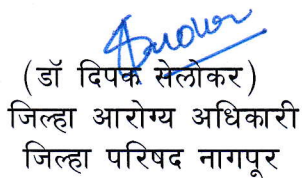 (डॉ दिपक सेलोकर)
जिल्हा आरोग्य अधिकारी
जिल्हा परिषद नागपूर